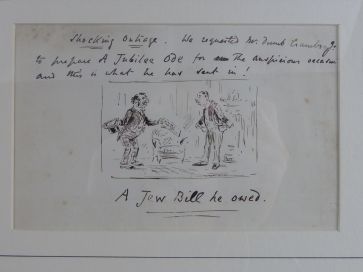 Shocking Outrage. We requested Mr. Dumb Crambo Jr.
to prepare A Jubilee Ode for the auspicious occasion
and this is what he has sent in!
A Jew Bill he owed.